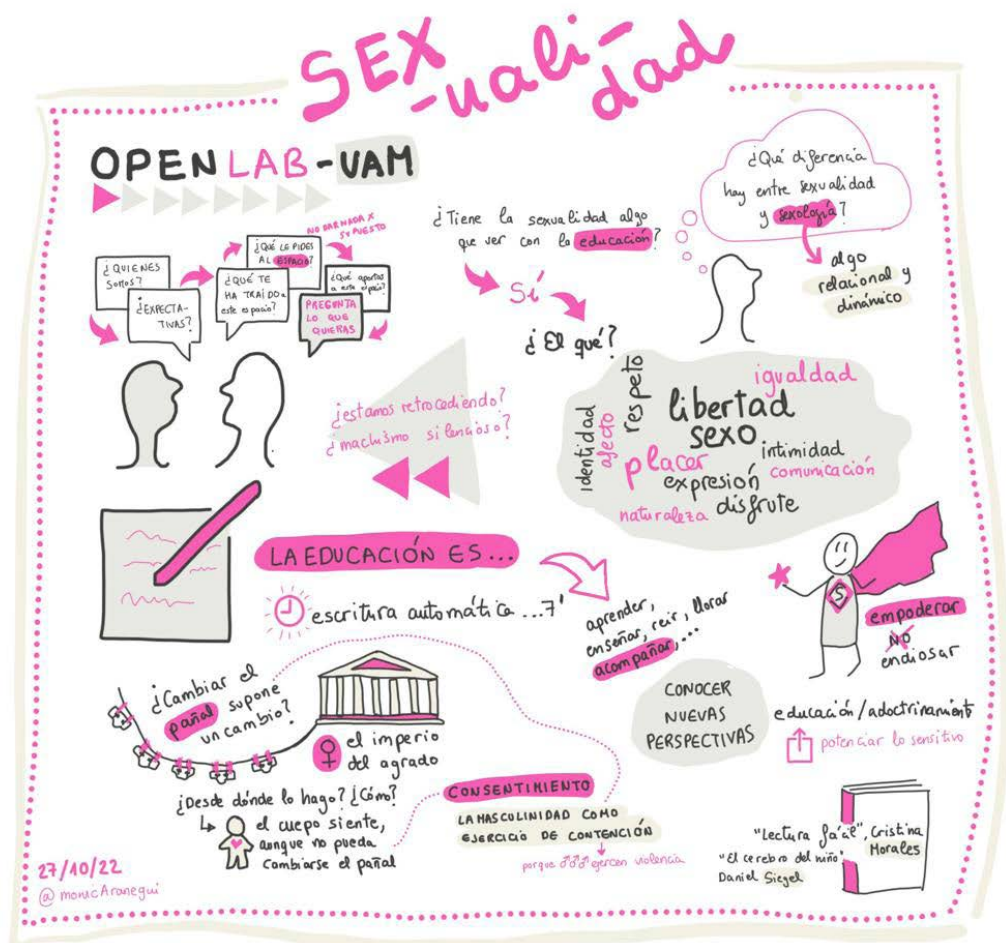 SEX
-uali-
dad
OPEN LAB-UAM
¿QUIENES
SOMOS?
¿EXPECTA-
TIVAS?
¿QUÉ LE PIDES
AL ESPACIO?
¿QUÉ TE
HA TRAÍDO a
este espacio?
NO DAR NADA X
SUPUESTO
¿Qué aportas
a este espacio?
PREGUNTA
LO QUE
QUIERAS
¿Tiene la sexualidad algo
que ver con la educación?
Sí
¿El qué?
¿Qué diferencia
hay entre sexualidad
y sexología?
algo
relacional y
dinámico
¿estamos retrocediendo?
¿machismo silencioso?
identidad
afecto
respeto
igualdad
libertad
sexo
placer
intimidad
expresión
comunicación
naturaleza
disfrute
LA EDUCACIÓN ES...
escritura automática ...7'
aprender,
enseñar, reir, llorar
acompañar,...
S
empoderar
NO
endiosar
¿Cambiar el
pañal supone
un cambio?
el imperio
del agrado
CONOCER
NUEVAS
PERSPECTIVAS
educación/adoctrinamiento
potenciar lo sensitivo
¿Desde dónde lo hago? ¿Cómo?
el cuepo siente,
aunque no pueda
cambiarse el pañal
CONSENTIMIENTO
LA MASCULINIDAD COMO
EJERCICIO DE CONTENCIÓN
porque ♂♂♂ ejercen violencia
"Lectura fácil", Cristina
Morales
"El cerebro del niño"
Daniel Siegel
27/10/22
@monicAranegui